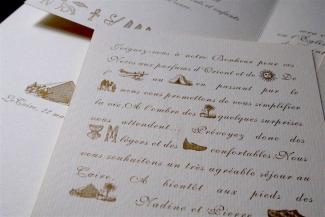 Joignez-nous à notre Bonheur pour ces
Noces aux parfums d'Orient et de De
au en passant par le
nous vous promettons de vous simplifier
la vie. A l'ombre des quelques surprises
vous attendent... Prévoyez donc des
légers et des confortables. Nous
vous souhaitons un très agréable séjour au
Caire. A bientôt aux pieds des
Nadine et Pierre